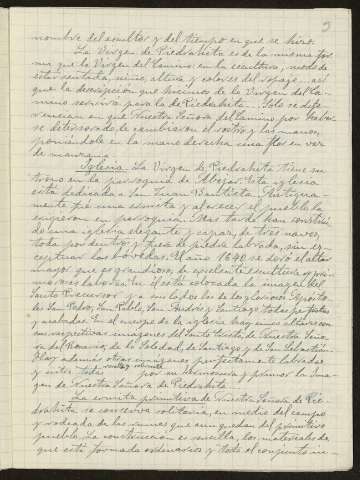 5
nombre del escultor y del tiempo en que se hizo.
La Virgen de Piedrahita es de la misma for-
ma que la Virgen del Camino en la escultura, modo de
estar sentada, niño, altura y colores del ropaje, así
que la descripción que hicimos de la Virgen del Ca-
mino serviría para la de Piedrahita. Solo se dife-
rencian en que Nuestra Señora del Camino por haber
se deteriorado, le cambiaron el rostro y las manos,
poniéndole en la mano derecha una flor en vez
de manzana.
Iglesia. La Virgen de Piedrahita tiene su
trono en la parroquia de Abejar. Esta iglesia
está dedicada a San Juan Bautista. Antigua-
mente fué una ermita y al crecer el pueblo la
erigieron en parroquia. Mas tarde han construi-
do una iglesia elegante y capaz, de tres naves,
toda por dentro y fuera de piedra labrada, sin ex-
ceptuar las bóvedas. El año 1640 se doró el altar
mayor que es grandioso, de excelente escultura y pri-
morosas labores. En él está colocada la imagen del
Santo Precursor y a sus lados las de los gloriosos Apósto-
les San Pedro, San Pablo, San Andrés y Santiago todas perfectas
y acabadas. En el cuerpo de la iglesia hay unos altares con
las respectivas imágenes del Santo Cristo, de Nuestra Seño-
ra del Rosario, de la Soledad, de Santiago y de San Sebastián.
Hay además otras imágenes perfectamente labradas
y entre todas por su hermosura y primor la Ima-
gen de Nuestra Señora de Piedrahita.
La ermita primitiva de Nuestra Señora de Pie-
drahita se conserva solitaria, en medio del campo
y rodeada de las ruinas que aun quedan del primitivo
pueblo. La construcción es sencilla, los materiales de
que está formada ordinarios y todo el conjunto in-